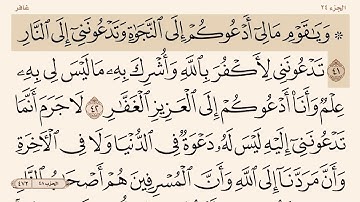 الجزء ٢٤ غافر
۞ وَيَٰقَوْمِ مَالِيٓ أَدْعُوكُمْ إِلَى ٱلنَّجَوٰةِ وَتَدْعُونَنِيٓ إِلَى ٱلنَّارِ
٤١ تَدْعُونَنِي لِأَكْفُرَ بِٱللَّهِ وَأُشْرِكَ بِهِۦ مَا لَيْسَ لِي بِهِۦ
عِلْمٌ وَأَنَا۠ أَدْعُوكُمْ إِلَى ٱلْعَزِيزِ ٱلْغَفَّٰرِ ٤٢ لَا جَرَمَ أَنَّمَا
تَدْعُونَنِيٓ إِلَيْهِ لَيْسَ لَهُۥ دَعْوَةٌ فِي ٱلدُّنْيَا وَلَا فِي ٱلْأٓخِرَةِ
وَأَنَّ مَرَدَّنَآ إِلَى ٱللَّهِ وَأَنَّ ٱلْمُسْرِفِينَ هُمْ أَصْحَٰبُ ٱلنَّارِ
الحزب ٤١ ٤٧٢